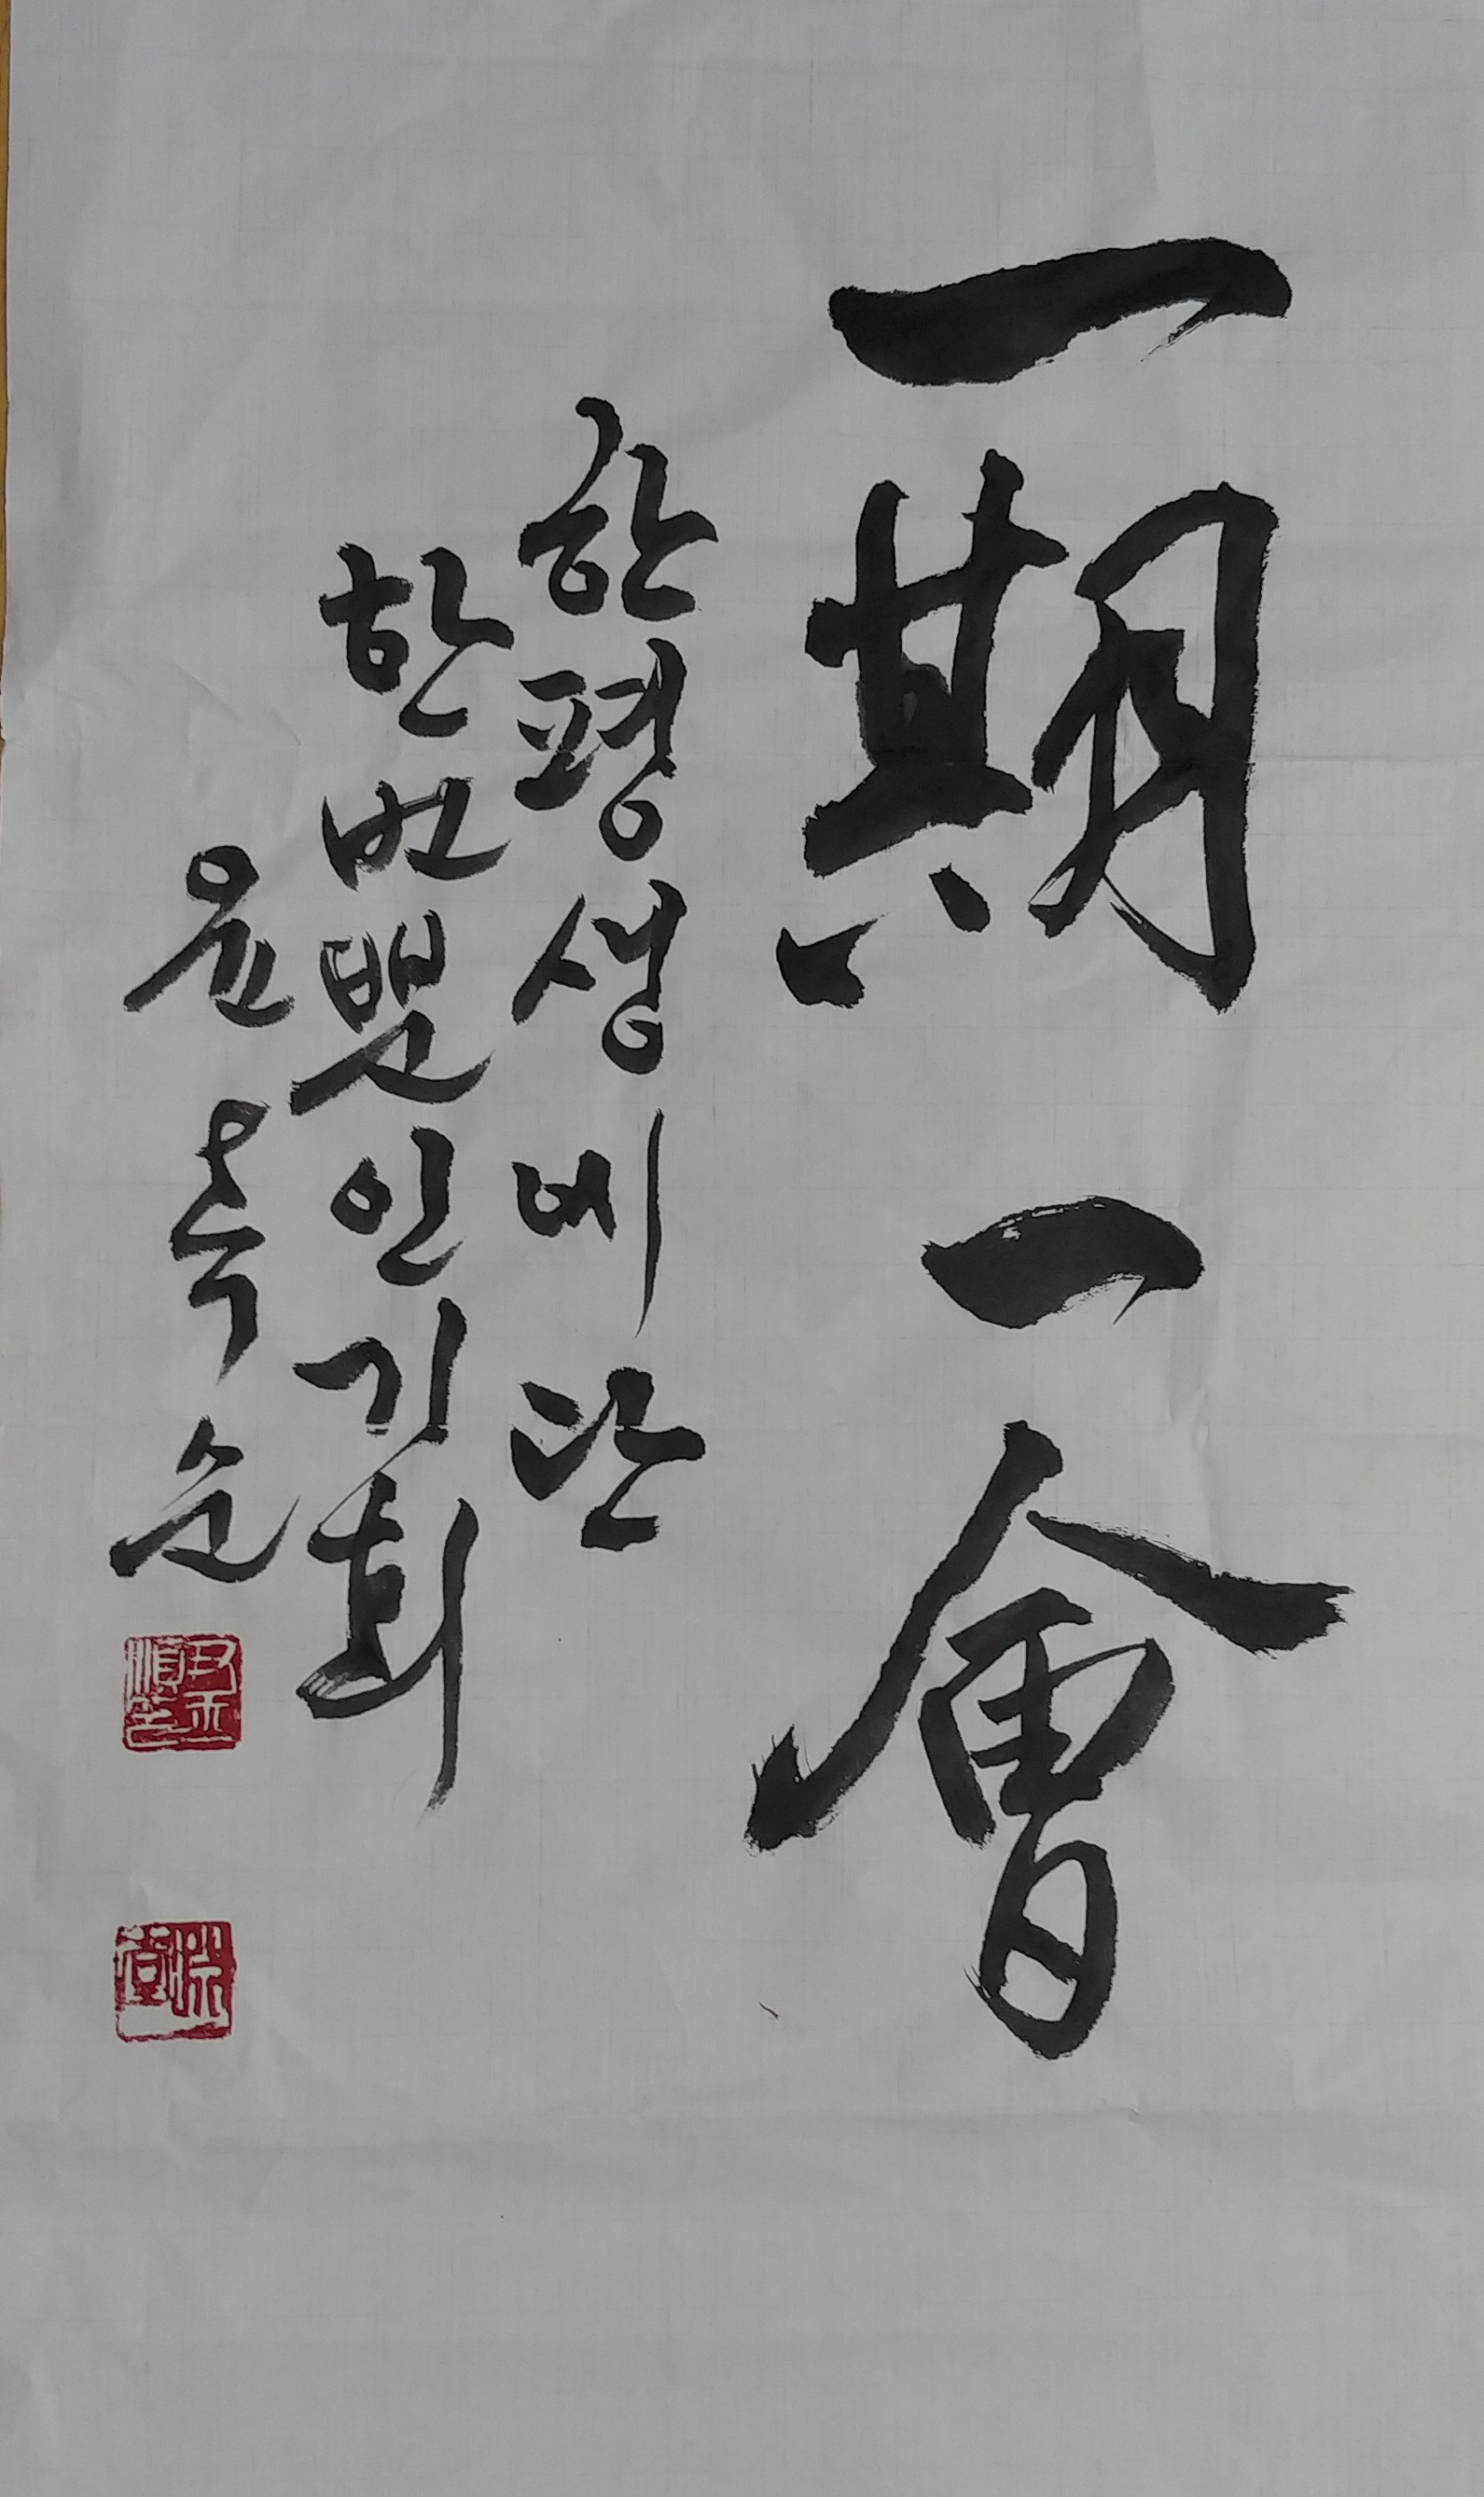 一期一會
한평생에 단
한번뿐인 기회
윤옥순